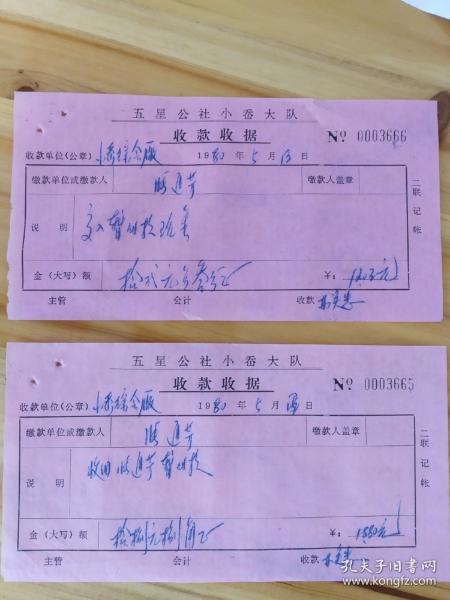 五星公社小岙大队
收款收据 № 0003666
收款单位(公章) 小岙综合厂 1980年5月13日
缴款单位或缴款人 缴款人盖章
说明 交入暂时款现金
金(大写)额 拾式元另叁分正 ¥: 12.03元
主管 会计 收款
二联记帐
五星公社小岙大队
收款收据 № 0003665
收款单位(公章) 小岙综合厂 1980年5月 日
缴款单位或缴款人 缴款人盖章
说明 收回 暂时款
金(大写)额 拾捌元捌角正 ¥: 1880元
主管 会计 收款
二联记帐
孔夫子旧书网